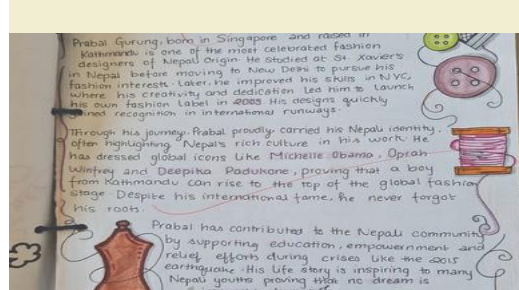 Prabal Gurung, born in Singapore and raised in
Kathmandu is one of the most celebrated fashion
designers of Nepali Origin. He studied at St. Xavier's
in Nepal before moving to New Delhi to pursue his
fashion interests. Later, he improved his skills in NYC,
where his creativity and dedication led him to launch
his own fashion label in 2009. His designs quickly
gained recognition in international runways.
Through his journey, Prabal proudly carried his Nepali identity,
often highlighting Nepal's rich culture in his work. He
has dressed global icons like Michelle Obama, Oprah
Winfrey and Deepika Padukone, proving that a boy
from Kathmandu can rise to the top of the global fashion
stage. Despite his international fame, he never forgot
his roots.
Prabal has contributed to the Nepali community
by supporting education, empowerment and
relief efforts during crises like the 2015
earthquake. His life story is inspiring to many
Nepali youths proving that no dream is